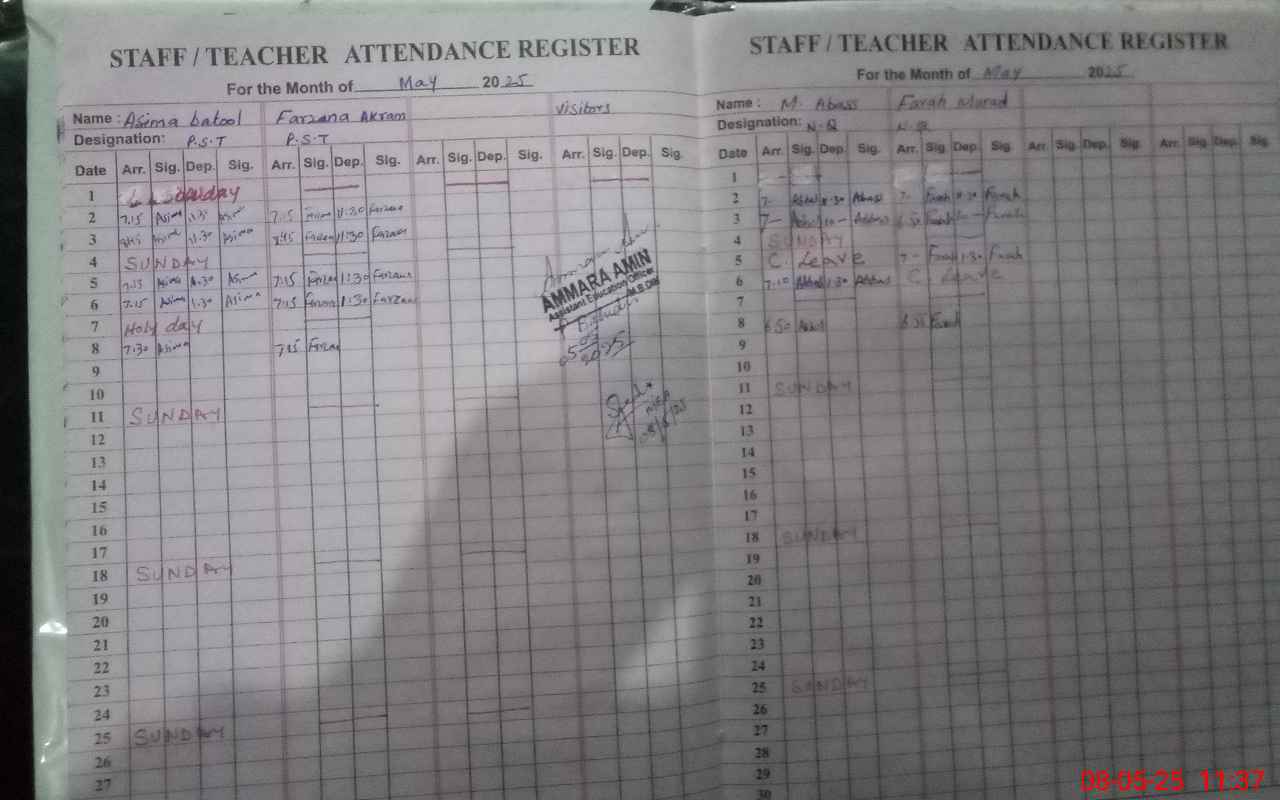 STAFF / TEACHER ATTENDANCE REGISTER
For the Month of May 2025
Name : Asima batool Farzana Akram visitors
Designation: P.S.T P.S.T
Date Arr. Sig. Dep. Sig. Arr. Sig. Dep. Sig. Arr. Sig. Dep. Sig. Arr. Sig. Dep. Sig.
1
2 7.15 Asima Asima 7:15 11:30 Farzana
3 Asima 11.30 Asima 7:45 Farzana 11:30 Farzana
4 SUNDAY
5 7.15 Asima Asima 7:15 Farzana 1:30 Farzana
6 7.15 Asima 1.30 Asima 7:15 Farzana 1:30 Farzana
7 Holy day
8 7:30 Asima 7:15 Farzana
9
10
11 SUNDAY
12
13
14
15
16
17
18 SUNDAY
19
20
21
22
23
24
25 SUNDAY
26
27
AMMARA AMIN
Assistant Education Officer
M.B.Din
2025
STAFF / TEACHER ATTENDANCE REGISTER
For the Month of May 2025
Name : M. Abass Farah Murad
Designation: N.Q N.Q
Date Arr. Sig. Dep. Sig. Arr. Sig. Dep. Sig. Arr. Sig. Dep. Sig. Arr. Sig. Dep. Sig.
1
2 7- Abbas Abbas 7- Farah Farah
3 7- Abbas Farah Farah
4 SUNDAY
5 C. Leave 7- Farah 1:30 Farah
6 7.10 Abbas 1:30 Abbas C Leave
7
8 6.50 Abbas Farah
9
10
11 SUNDAY
12
13
14
15
16
17
18 SUNDAY
19
20
21
22
23
24
25 SUNDAY
26
27
28
29
30
08-05-25 11:37